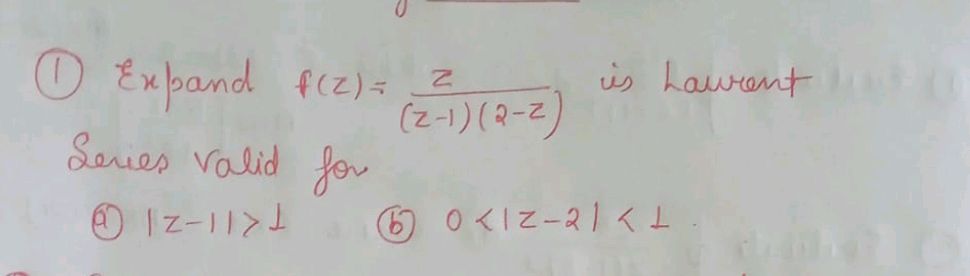 ① Expand f(z) = z / (z-1)(2-z) is Laurent
Series valid for
ⓐ |z-1| > 1 ⓑ 0 < |z-2| < 1.